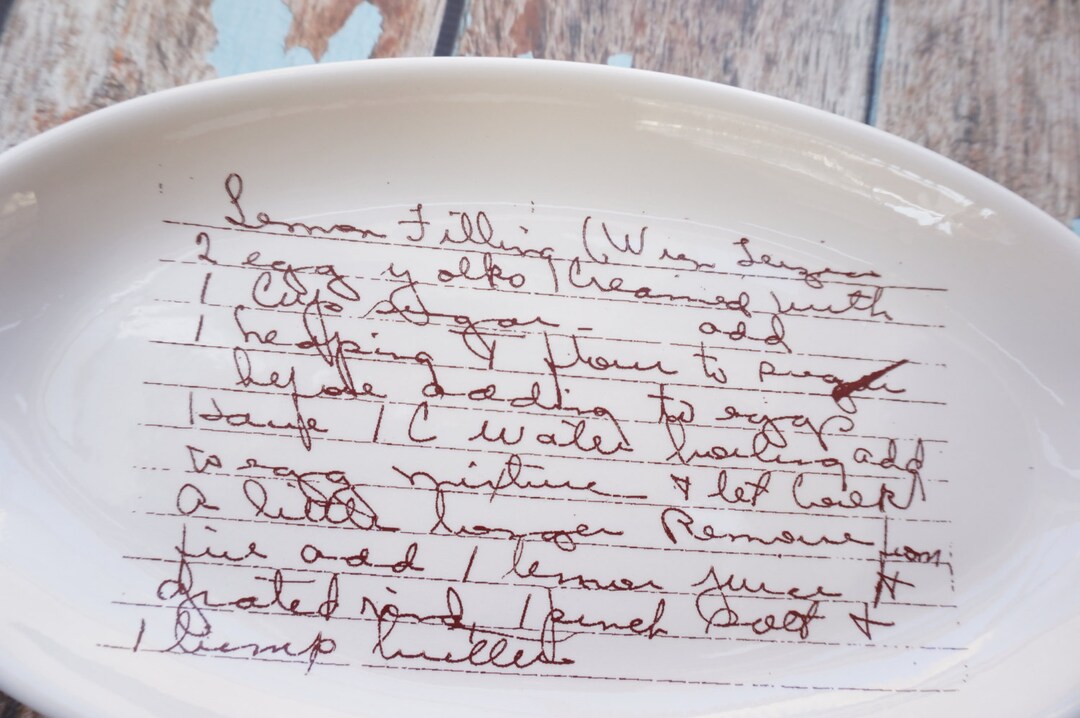 Lemon Filling (
2 egg yolks Creamed with
1 Cup Sugar - add
1 heaping T flour to sugar
before adding to eggs
Have 1 C Water boiling add
to egg mixture & let Cook
a little longer Remove from
fire add 1 lemon juice &
grated rind, 1 pinch Salt &
1 lump butter